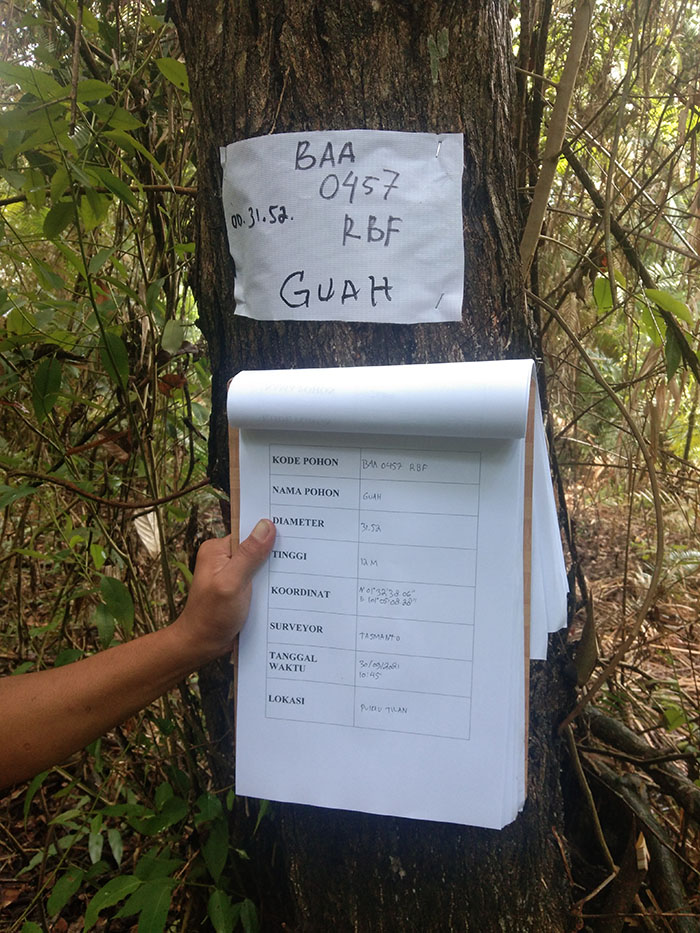 BAA
0457
00.31.52.
RBF
GUAH
KODE POHON BAA 0457 RBF
NAMA POHON GUAH
DIAMETER 31.52
TINGGI 12 M
KOORDINAT N 01°32'38.06"
E 101°05'08.88"
SURVEYOR TASMANTO
TANGGAL WAKTU 30/09/2021
10:45
LOKASI PULAU TILAN